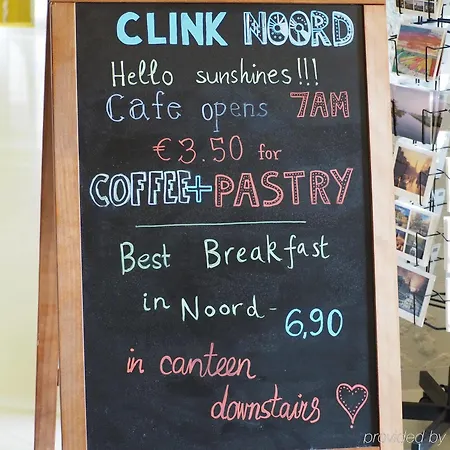 CLINK NOORD
Hello sunshines!!!
Cafe opens 7AM
€3.50 for
COFFEE+PASTRY
Best Breakfast
in Noord - 6,90
in canteen
downstairs
provided by